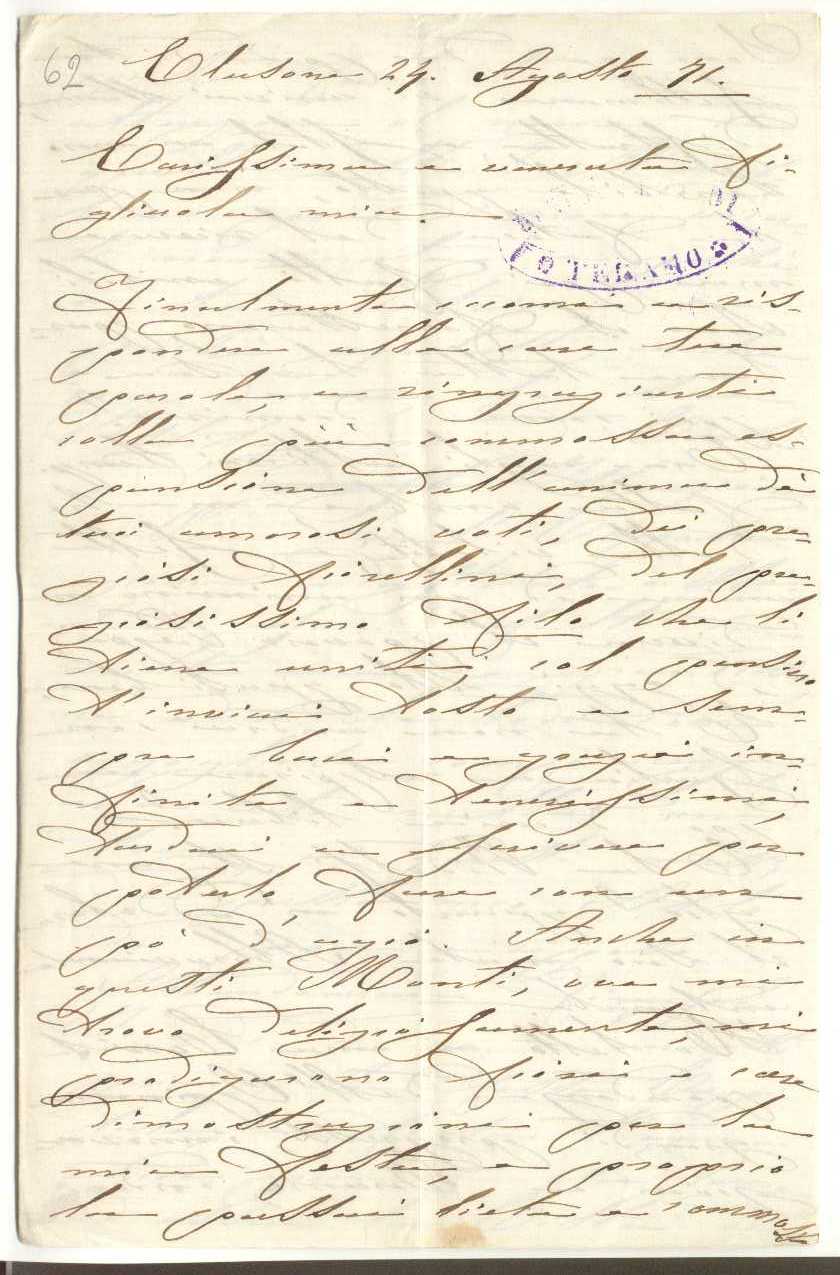 62
Clusone 24. Agosto 71.
Carissima e venerata Fi-
gliuola mia.
TERAMO
Finalmente eccomi a ris-
pondere alle care tue
parole, a ringraziarti
colla più commossa es-
pansione dell'anima de'
tuoi amorosi voti, dei pre-
ziosi fiorellini, del pre-
ziosissimo filo che li
tiene uniti; col pensiero
t'inviai tosto e sem-
pre baci e grazie in-
finite e tenerissimi,
tardai a scrivere per
poterlo fare con un
po' d'agio. Anche in
questi Monti, ove mi
trovo deliziosamente, mi
prodigarono fiori e care
dimostrazioni per la
mia festa, e proprio
la passai lieta e commossa